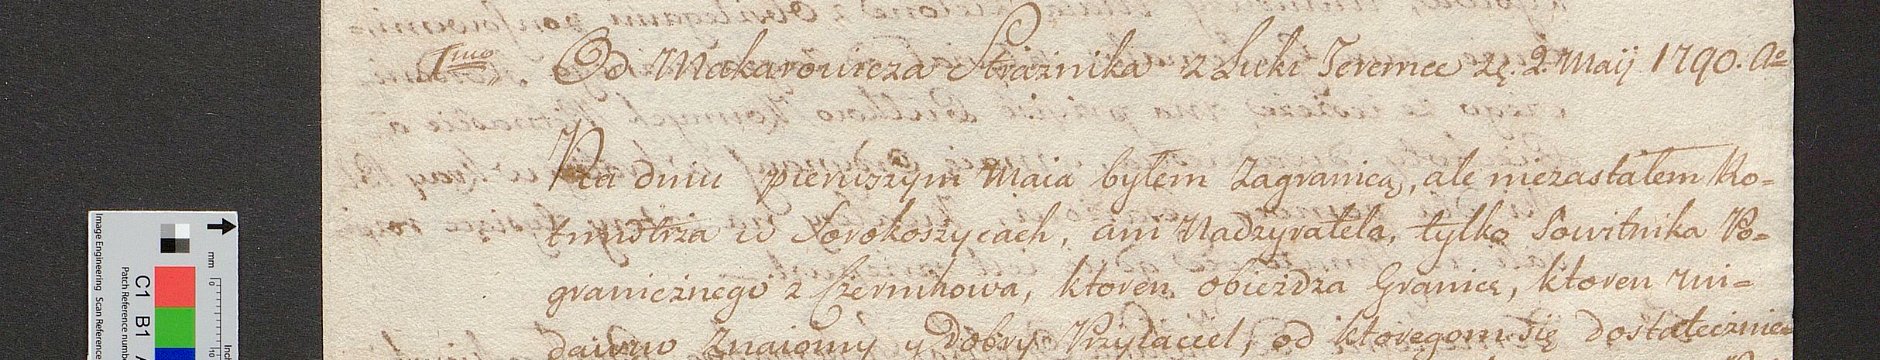 1mo Od Makarowicza Strażnika z Łuki Jeremee zę. 2. Maij 1790. Ae
Na dniu pierwszym Maia byłem zagranicą, ale niezastałem Ro-
tmistrza w Sorokoszycach, ani Nadzyratela, tylko Sowitnika Po-
granicznego z Czernihowa, ktoren obieżdza Granicę, ktoren mi-
dawno Znaiomy y dobry Przyiaciel, od ktoregom się dostatecznie
Image Engineering Scan Reference
Patch Reference numb
C1 B1
mm
0
10
Inch